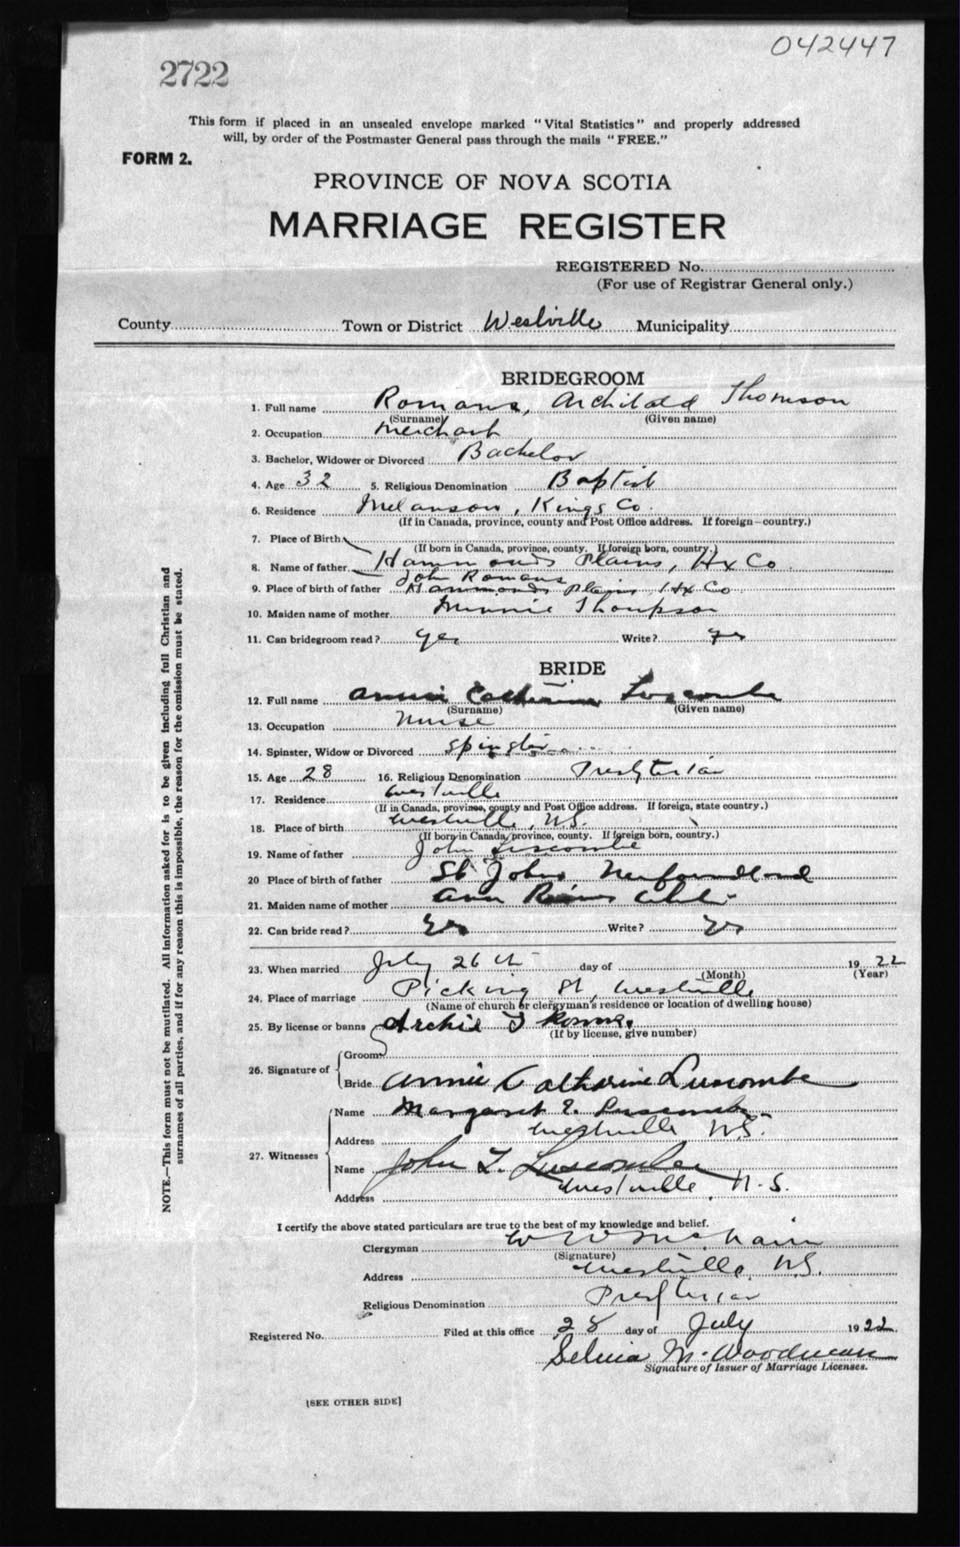 042447
2722
This form if placed in an unsealed envelope marked "Vital Statistics" and properly addressed
will, by order of the Postmaster General pass through the mails "FREE."
FORM 2.
PROVINCE OF NOVA SCOTIA
MARRIAGE REGISTER
REGISTERED No.
(For use of Registrar General only.)
County Town or District Westville Municipality
BRIDEGROOM
1. Full name Romans, Archibald Thomson
(Surname) (Given name)
2. Occupation Merchant
3. Bachelor, Widower or Divorced Bachelor
4. Age 32 5. Religious Denomination Baptist
6. Residence Melanson, Kings Co.
(If in Canada, province, county and Post Office address. If foreign—country.)
7. Place of Birth
(If born in Canada, province, county. If foreign born, country.)
8. Name of father Hammonds Plains, Hx Co.
John Romans
9. Place of birth of father Hammonds Plains, Hx Co.
10. Maiden name of mother Minnie Thompson
11. Can bridegroom read? yes Write? yes
BRIDE
12. Full name Annie Catherine Luscombe
(Surname) (Given name)
13. Occupation Nurse
14. Spinster, Widow or Divorced Spinster
15. Age 28 16. Religious Denomination Presbyterian
17. Residence Westville
(If in Canada, province, county and Post Office address. If foreign, state country.)
18. Place of birth Westville, N.S.
(If born in Canada, province, county. If foreign born, country.)
19. Name of father John Luscombe
20 Place of birth of father St Johns Newfoundland
21. Maiden name of mother Ann
22. Can bride read? Yes Write? Yes
23. When married July 26th day of 1922
(Month) (Year)
24. Place of marriage Pickering St, Westville
(Name of church or clergyman's residence or location of dwelling house)
25. By license or banns Archie T Romans
(If by license, give number)
26. Signature of Groom
Bride Annie Catherine Luscombe
27. Witnesses Name Margaret E. Luscombe
Address Westville N.S.
Name John T. Luscombe
Address Westville, N.S.
I certify the above stated particulars are true to the best of my knowledge and belief.
Clergyman W W McNairn
(Signature)
Address Westville, N.S.
Religious Denomination Presbyterian
Registered No. Filed at this office 28 day of July 1922
Selina M. Woodman
Signature of Issuer of Marriage Licenses.
[SEE OTHER SIDE]
NOTE.—This form must not be mutilated. All information asked for is to be given including full Christian and
surnames of all parties, and if for any reason this is impossible, the reason for the omission must be stated.